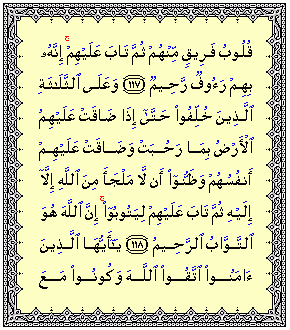 قُلُوبُ فَرِيقٍ مِّنْهُمْ ثُمَّ تَابَ عَلَيْهِمْ ۚ إِنَّهُۥ
بِهِمْ رَءُوفٌ رَّحِيمٌ ﴿١١٧﴾ وَعَلَى ٱلثَّلَـٰثَةِ
ٱلَّذِينَ خُلِّفُوا۟ حَتَّىٰٓ إِذَا ضَاقَتْ عَلَيْهِمُ
ٱلْأَرْضُ بِمَا رَحُبَتْ وَضَاقَتْ عَلَيْهِمْ
أَنفُسُهُمْ وَظَنُّوٓا۟ أَن لَّا مَلْجَأَ مِنَ ٱللَّهِ إِلَّآ
إِلَيْهِ ثُمَّ تَابَ عَلَيْهِمْ لِيَتُوبُوٓا۟ ۚ إِنَّ ٱللَّهَ هُوَ
ٱلتَّوَّابُ ٱلرَّحِيمُ ﴿١١٨﴾ يَـٰٓأَيُّهَا ٱلَّذِينَ
ءَامَنُوا۟ ٱتَّقُوا۟ ٱللَّهَ وَكُونُوا۟ مَعَ